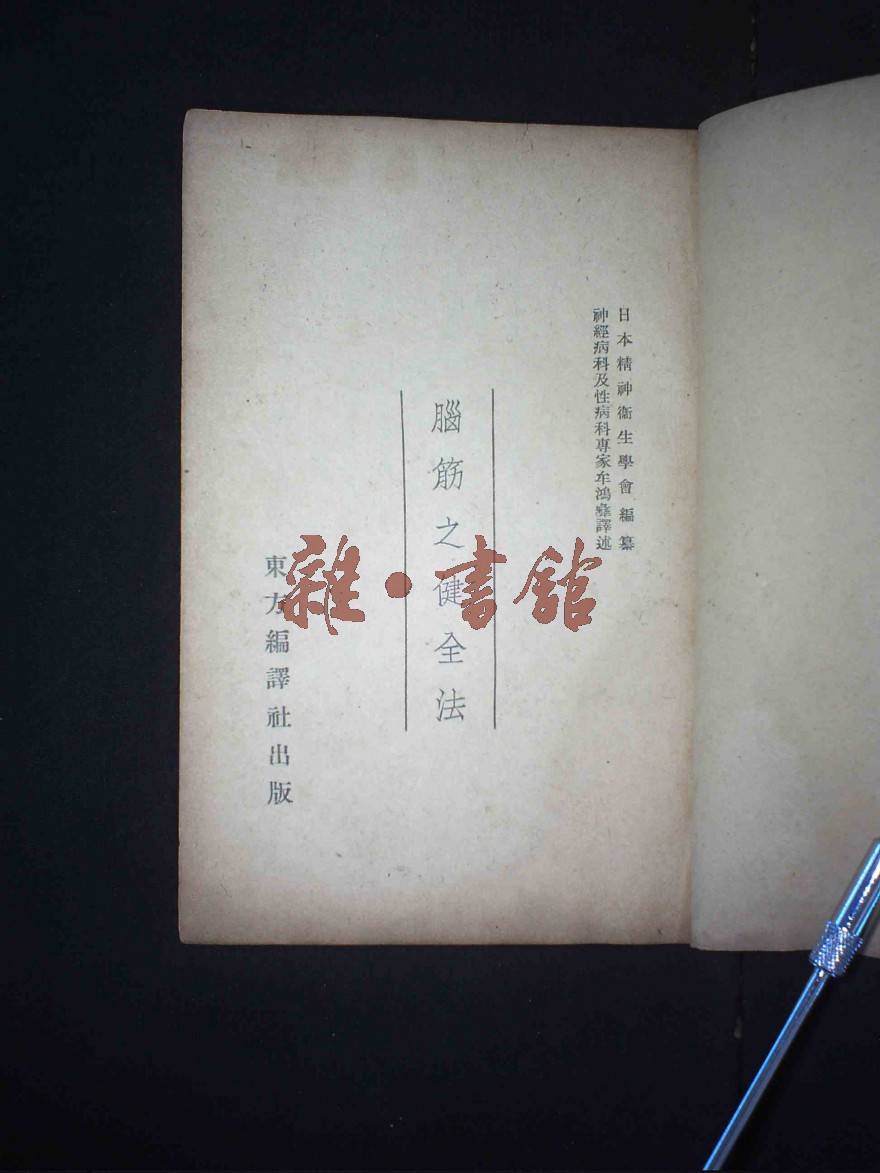 日本精神衞生學會編纂
神經病科及性病科專家牟鴻彝譯述
腦筋之健全法
東方編譯社出版
雜·書館